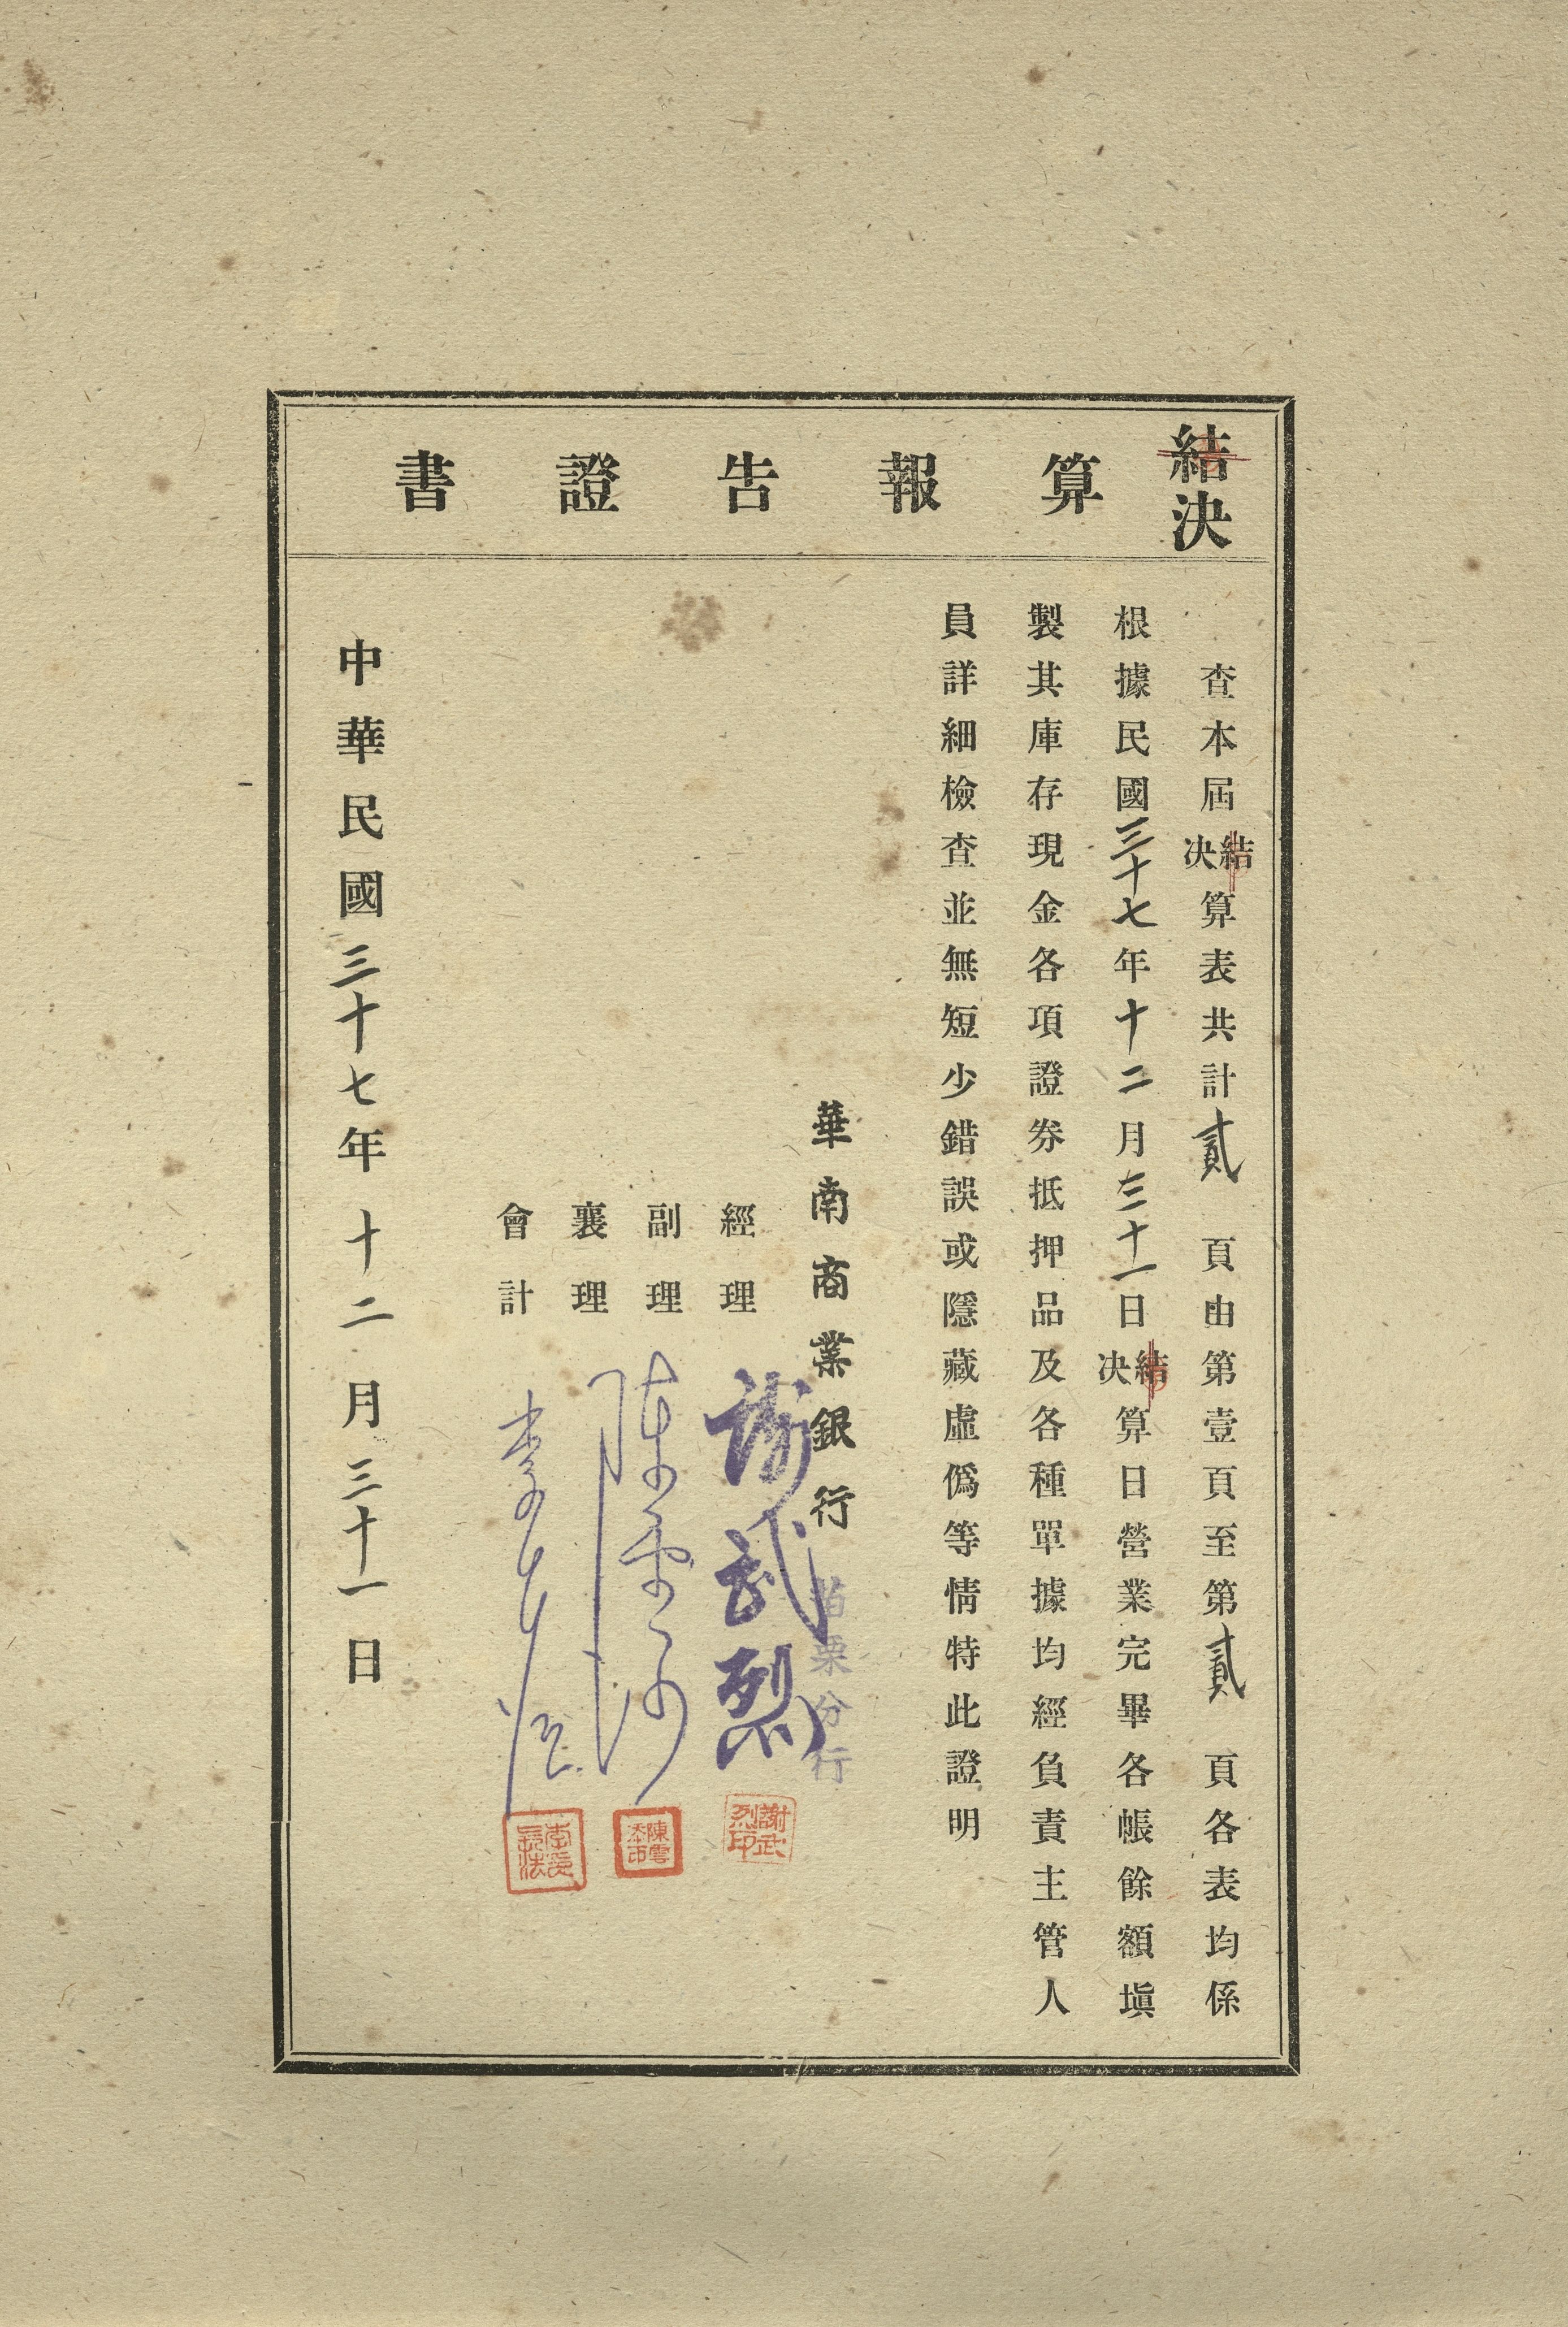 結決算報告證書
查本屆結決算表共計貳頁由第壹頁至第貳頁各表均係
根據民國三十七年十二月三十一日結決算日營業完畢各帳餘額塡
製其庫存現金各項證券抵押品及各種單據均經負責主管人
員詳細檢查並無短少錯誤或隱藏虛僞等情特此證明
華南商業銀行苗栗分行
經理 謝武烈
謝武烈印
副理 陳雲
襄理
會計 李
中華民國三十七年十二月三十一日